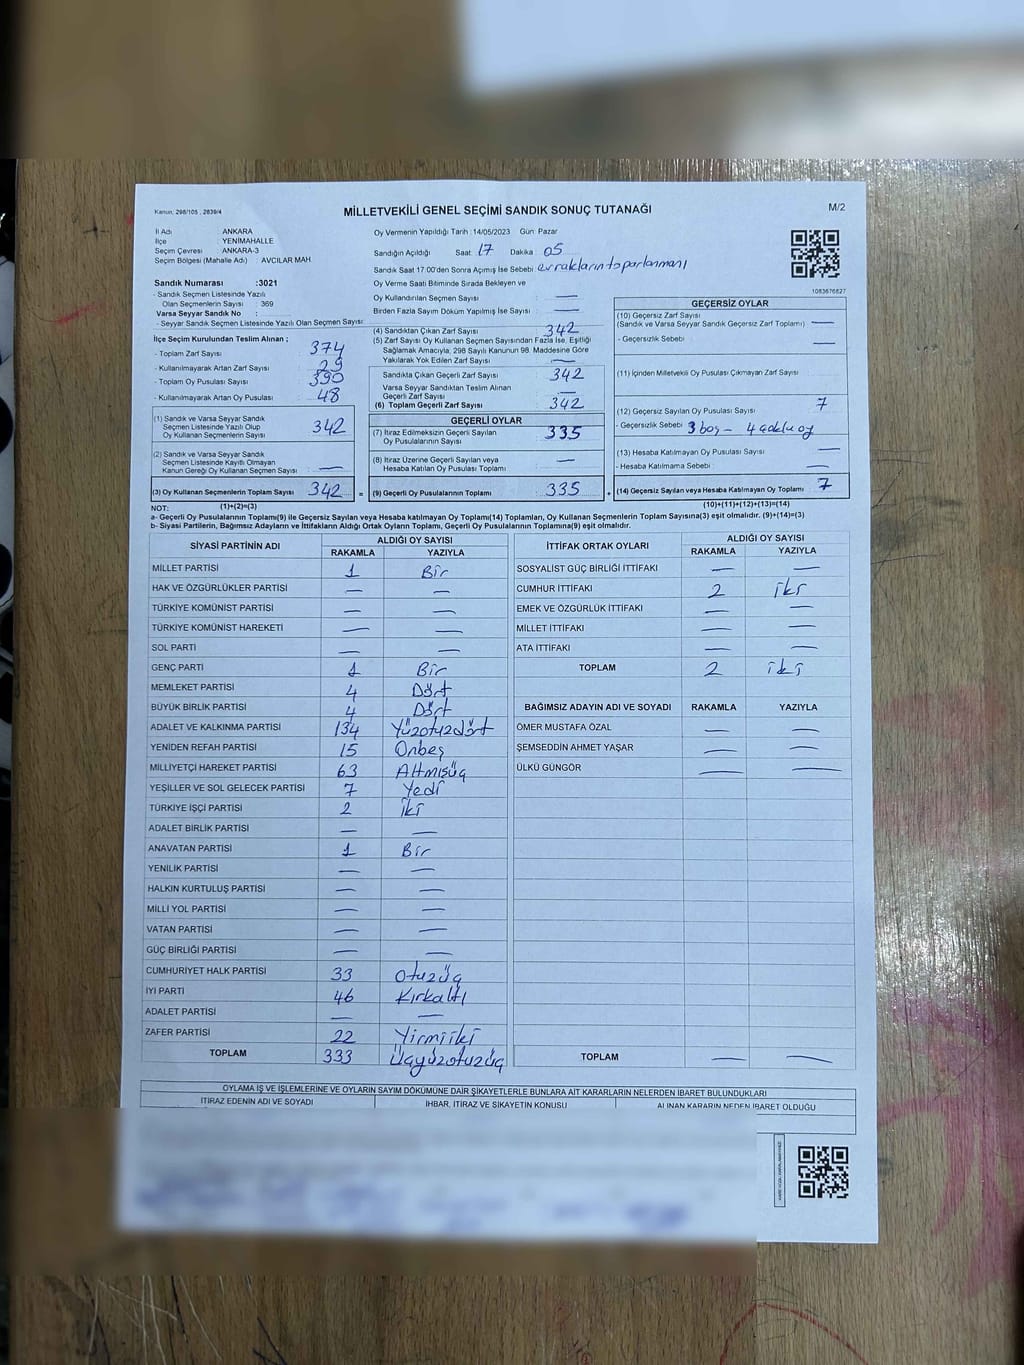 Kanun; 298/105 , 2839/4
MİLLETVEKİLİ GENEL SEÇİMİ SANDIK SONUÇ TUTANAĞI
M/2
İl Adı ANKARA
İlçe YENİMAHALLE
Seçim Çevresi ANKARA-3
Seçim Bölgesi (Mahalle Adı) : AVCILAR MAH.
Sandık Numarası :3021
- Sandık Seçmen Listesinde Yazılı
Olan Seçmenlerin Sayısı : 369
Varsa Seyyar Sandık No :
- Seyyar Sandık Seçmen Listesinde Yazılı Olan Seçmen Sayısı:
İlçe Seçim Kurulundan Teslim Alınan ;
- Toplam Zarf Sayısı : 374
- Kullanılmayarak Artan Zarf Sayısı : 29
- Toplam Oy Pusulası Sayısı : 390
- Kullanılmayarak Artan Oy Pusulası : 48
(1) Sandık ve Varsa Seyyar Sandık
Seçmen Listesinde Yazılı Olup
Oy Kullanan Seçmenlerin Sayısı : 342
(2) Sandık ve Varsa Seyyar Sandık
Seçmen Listesinde Kayıtlı Olmayan
Kanun Gereği Oy Kullanan Seçmen Sayısı : —
(3) Oy Kullanan Seçmenlerin Toplam Sayısı : 342 =
Oy Vermenin Yapıldığı Tarih : 14/05/2023 Gün: Pazar
Sandığın Açıldığı Saat: 17 Dakika : 05
Sandık Saat 17.00'den Sonra Açımış İse Sebebi: evrakların toparlanması
Oy Verme Saati Bitiminde Sırada Bekleyen ve
Oy Kullandırılan Seçmen Sayısı : —
Birden Fazla Sayım Döküm Yapılmış İse Sayısı : —
(4) Sandıktan Çıkan Zarf Sayısı : 342
(5) Zarf Sayısı Oy Kullanan Seçmen Sayısından Fazla İse, Eşitliği
Sağlamak Amacıyla; 298 Sayılı Kanunun 98. Maddesine Göre
Yakılarak Yok Edilen Zarf Sayısı : —
Sandıkta Çıkan Geçerli Zarf Sayısı : 342
Varsa Seyyar Sandıktan Teslim Alınan
Geçerli Zarf Sayısı : —
(6) Toplam Geçerli Zarf Sayısı : 342
GEÇERLİ OYLAR
(7) İtiraz Edilmeksizin Geçerli Sayılan
Oy Pusulalarının Sayısı : 335
(8) İtiraz Üzerine Geçerli Sayılan veya
Hesaba Katılan Oy Pusulası Toplamı : —
(9) Geçerli Oy Pusulalarının Toplamı : 335 +
1083676827
GEÇERSİZ OYLAR
(10) Geçersiz Zarf Sayısı
(Sandık ve Varsa Seyyar Sandık Geçersiz Zarf Toplamı) : —
- Geçersizlik Sebebi : —
(11) İçinden Milletvekili Oy Pusulası Çıkmayan Zarf Sayısı : —
(12) Geçersiz Sayılan Oy Pusulası Sayısı : 7
- Geçersizlik Sebebi : 3 boş - 4 çoklu oy
(13) Hesaba Katılmayan Oy Pusulası Sayısı : —
- Hesaba Katılmama Sebebi : —
(14) Geçersiz Sayılan veya Hesaba Katılmayan Oy Toplamı : 7
NOT: (1)+(2)=(3) (10)+(11)+(12)+(13)=(14)
a- Geçerli Oy Pusulalarının Toplamı(9) ile Geçersiz Sayılan veya Hesaba Katılmayan Oy Toplamı(14) Toplamları, Oy Kullanan Seçmenlerin Toplam Sayısına(3) eşit olmalıdır. (9)+(14)=(3)
b- Siyasi Partilerin, Bağımsız Adayların ve İttifakların Aldığı Ortak Oyların Toplamı, Geçerli Oy Pusulalarının Toplamına(9) eşit olmalıdır.
SİYASİ PARTİNİN ADI ALDIĞI OY SAYISI
RAKAMLA YAZIYLA
MİLLET PARTİSİ 1 Bir
HAK VE ÖZGÜRLÜKLER PARTİSİ — —
TÜRKİYE KOMÜNİST PARTİSİ — —
TÜRKİYE KOMÜNİST HAREKETİ — —
SOL PARTİ — —
GENÇ PARTİ 1 Bir
MEMLEKET PARTİSİ 4 Dört
BÜYÜK BİRLİK PARTİSİ 4 Dört
ADALET VE KALKINMA PARTİSİ 134 Yüzotuzdört
YENİDEN REFAH PARTİSİ 15 Onbeş
MİLLİYETÇİ HAREKET PARTİSİ 63 Altmışüç
YEŞİLLER VE SOL GELECEK PARTİSİ 7 Yedi
TÜRKİYE İŞÇİ PARTİSİ 2 iki
ADALET BİRLİK PARTİSİ — —
ANAVATAN PARTİSİ 1 Bir
YENİLİK PARTİSİ — —
HALKIN KURTULUŞ PARTİSİ — —
MİLLİ YOL PARTİSİ — —
VATAN PARTİSİ — —
GÜÇ BİRLİĞİ PARTİSİ — —
CUMHURİYET HALK PARTİSİ 33 Otuzüç
İYİ PARTİ 46 Kırkaltı
ADALET PARTİSİ — —
ZAFER PARTİSİ 22 Yirmiiki
TOPLAM 333 Üçyüzotuzüç
İTTİFAK ORTAK OYLARI ALDIĞI OY SAYISI
RAKAMLA YAZIYLA
SOSYALİST GÜÇ BİRLİĞİ İTTİFAKI — —
CUMHUR İTTİFAKI 2 iki
EMEK VE ÖZGÜRLÜK İTTİFAKI — —
MİLLET İTTİFAKI — —
ATA İTTİFAKI — —
TOPLAM 2 iki
BAĞIMSIZ ADAYIN ADI VE SOYADI RAKAMLA YAZIYLA
ÖMER MUSTAFA ÖZAL — —
ŞEMSEDDİN AHMET YAŞAR — —
ÜLKÜ GÜNGÖR — —
TOPLAM — —
OYLAMA İŞ VE İŞLEMLERİNE VE OYLARIN SAYIM DÖKÜMÜNE DAİR ŞİKAYETLERLE BUNLARA AİT KARARLARIN NELERDEN İBARET BULUNDUKLARI
İTİRAZ EDENİN ADI VE SOYADI İHBAR, İTİRAZ VE ŞİKAYETİN KONUSU ALINAN KARARIN NEDEN İBARET OLDUĞU